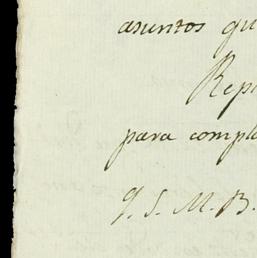 asuntos qu
Rep
para compla
Q. S. M. B.